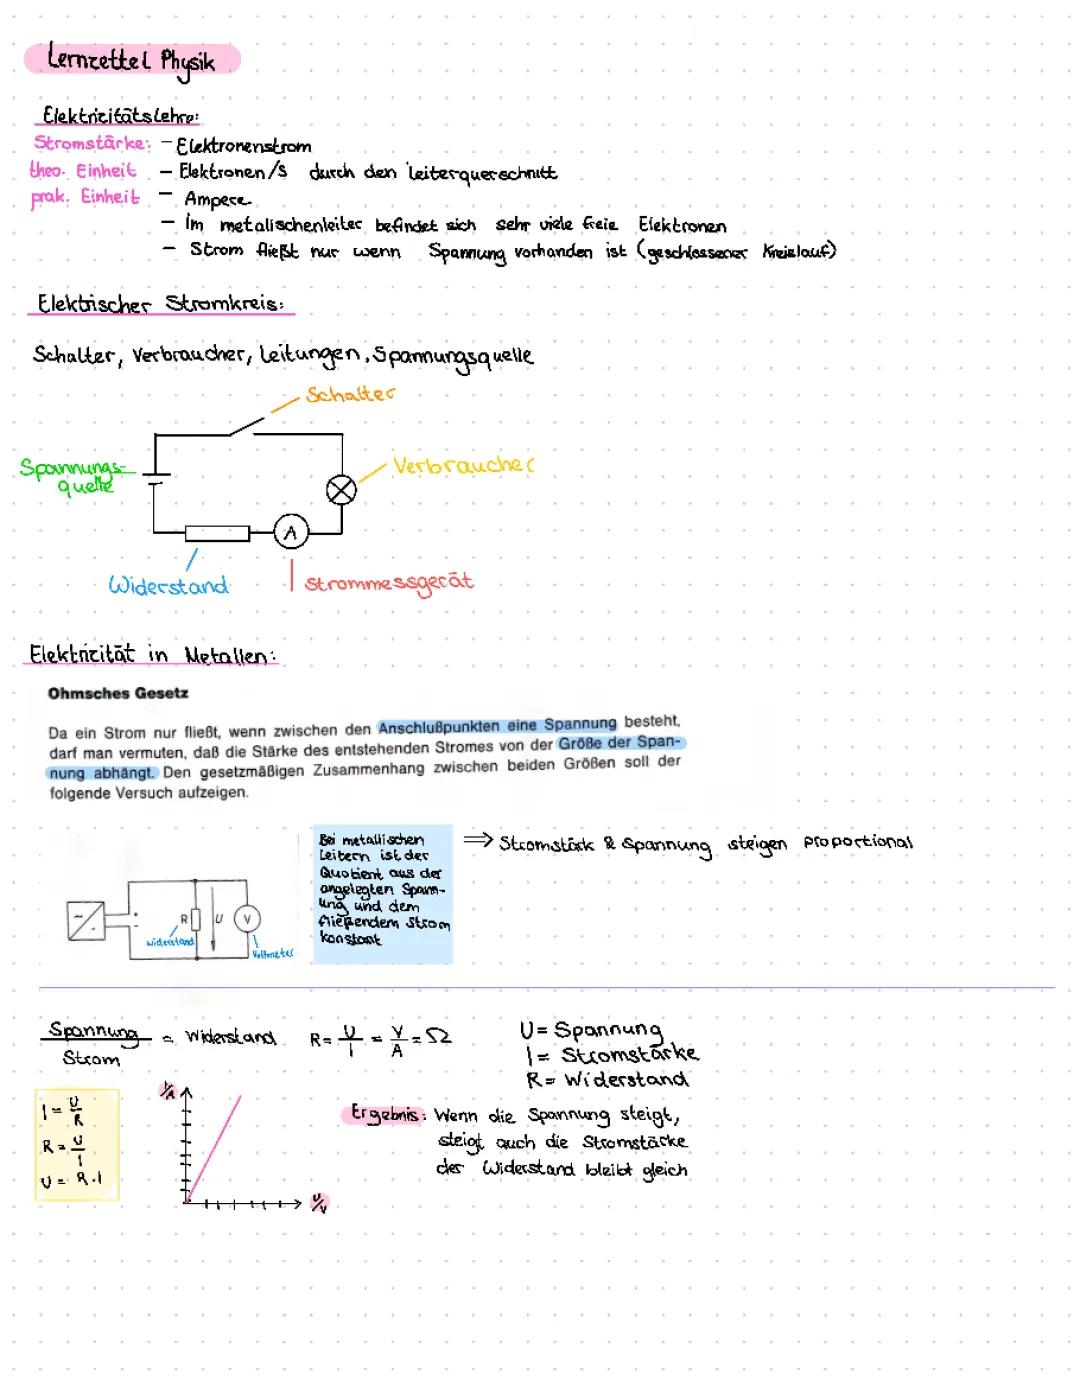 Lernzettel Physik
Elektrizitätslehre:
Stromstärke: - Elektronenstrom
theo. Einheit - Elektronen/s durch den leiterquerschnitt
prak. Einheit - Ampere
- im metalischenleiter befindet sich sehr viele freie Elektronen
- Strom fließt nur wenn Spannung vorhanden ist (geschlossener Kreislauf)
Elektrischer Stromkreis:
Schalter, Verbraucher, Leitungen, Spannungsquelle
Schalter
Spannungs-
quelle
Verbraucher
A
Widerstand
Strommessgerät
Elektrizität in Metallen:
Ohmsches Gesetz
Da ein Strom nur fließt, wenn zwischen den Anschlußpunkten eine Spannung besteht,
darf man vermuten, daß die Stärke des entstehenden Stromes von der Größe der Span-
nung abhängt. Den gesetzmäßigen Zusammenhang zwischen beiden Größen soll der
folgende Versuch aufzeigen.
Bei metallischen
Leitern ist der
Quotient aus der
angelegten Spann-
ung und dem
fließendem Strom
konstant
⇒ Stromstärk & Spannung steigen proportional
R U V
widerstand
Voltmeter
Spannung
Strom
= Widerstand R = U/I = V/A = Ω
U = Spannung
I = Stromstärke
R = Widerstand
I = U/R
R = U/I
U = R·I
I/A
U/V
Ergebnis: Wenn die Spannung steigt,
steigt auch die Stromstärke
der Widerstand bleibt gleich